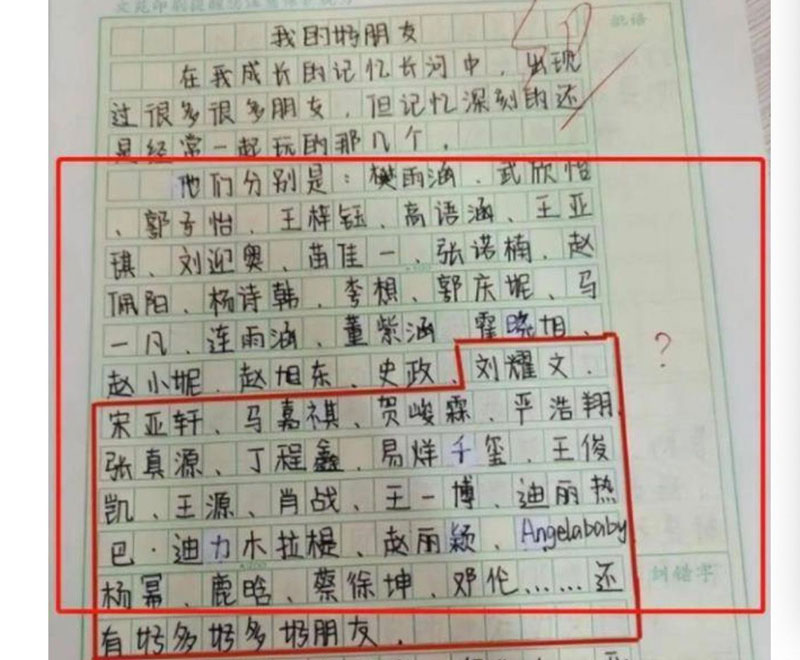 我的好朋友
在我成长的记忆长河中，出现
过很多很多朋友，但记忆深刻的还
是经常一起玩的那几个，
他们分别是：樊雨涵、武欣怡
、郭子怡、王梓钰、高语涵、王亚
琪、刘迎奥、苗佳一、张诺楠、赵
佩阳、杨诗韩、李想、郭庆妮、马
一凡、连雨涵、董紫涵、霍晓旭、
赵小妮、赵旭东、史政、刘耀文、
宋亚轩、马嘉祺、贺峻霖、严浩翔、
张真源、丁程鑫、易烊千玺、王俊
凯、王源、肖战、王一博、迪丽热
巴·迪力木拉提、赵丽颖、Angelababy
杨幂、鹿晗、蔡徐坤、邓伦……还
有好多好多好朋友，
?